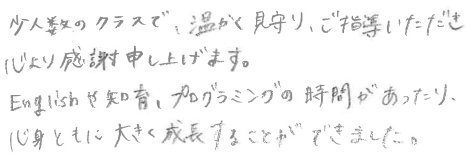 少人数のクラスで、温かく見守り、ご指導いただき
心より感謝申し上げます。
Englishや知育、プログラミングの時間があったり、
心身ともに大きく成長することができました。